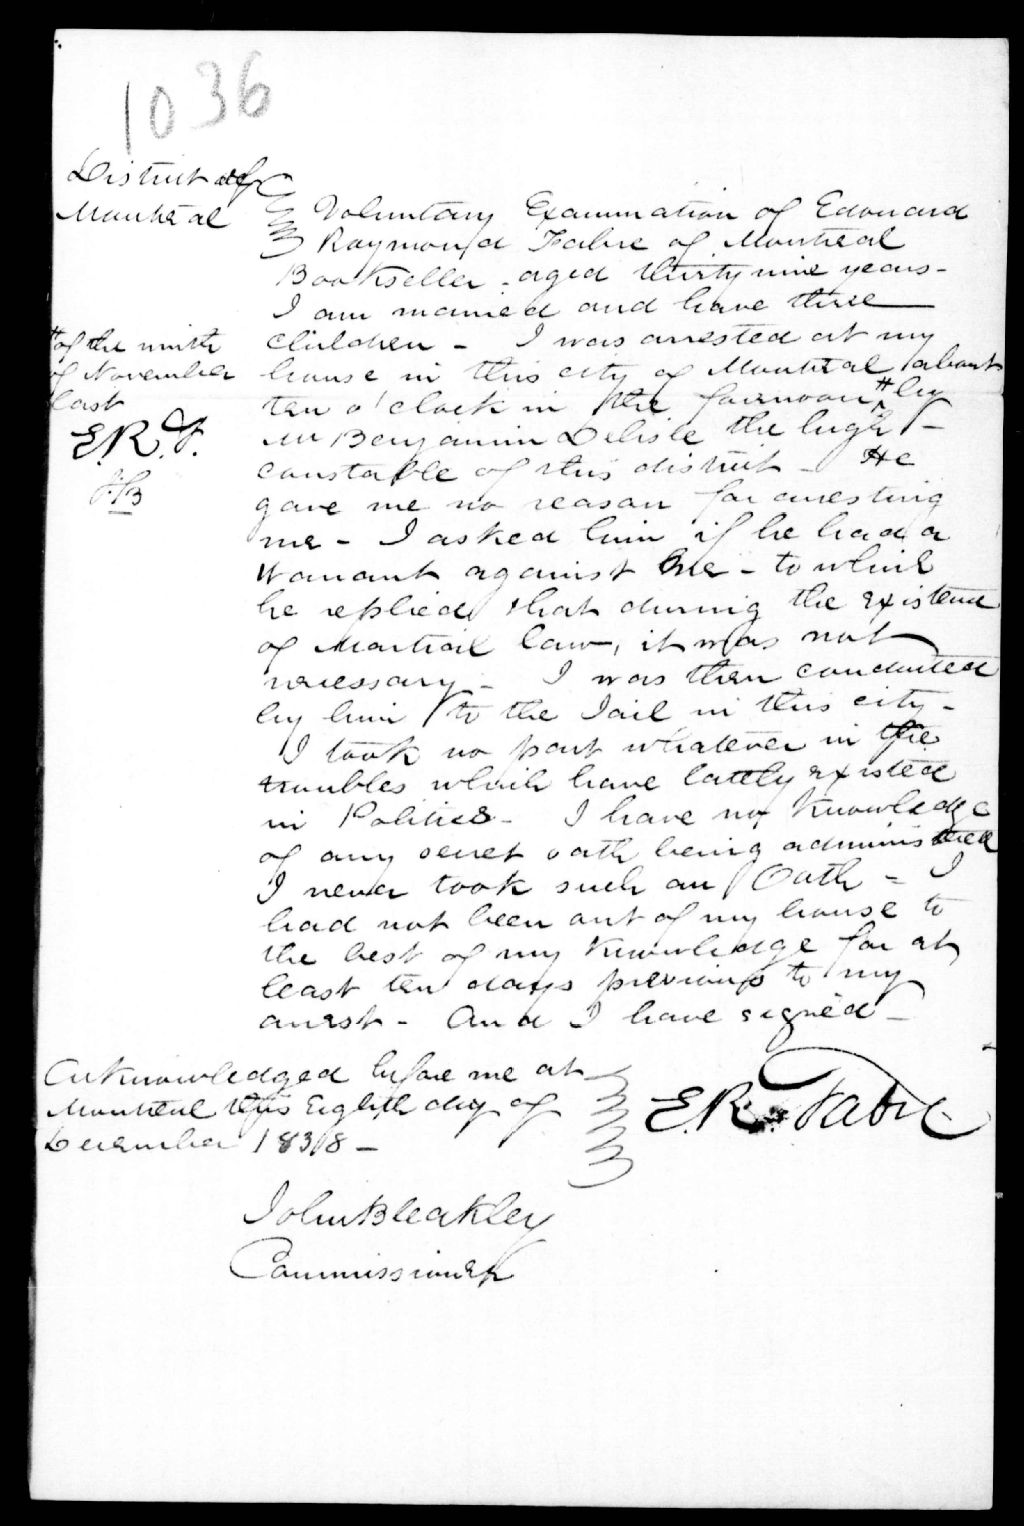 1036
District of
Montreal
Voluntary Examination of Edouard
Raymond Fabre of Montreal
Bookseller - aged thirty nine years -
I am married and have three
children - I was arrested at my
house in this city of Montreal about
ten o'clock in the forenoon # by
Mr Benjamin Delisle the high
constable of this district - He
gave me no reason for arresting
me - I asked him if he had a
Warrant against me - to which
he replied that during the existence
of Martial law, it was not
necessary - I was then conducted
by him to the Jail in this city -
I took no part whatever in the
troubles which have lately existed
in Politics - I have no knowledge
of any secret oath being administered
I never took such an Oath - I
had not been out of my house to
the best of my knowledge for at
least ten days previous to my
arrest - And I have signed -
# of the ninth
of November
last
E.R.F.
J.B
Acknowledged before me at
Montreal this Eighth day of
December 1838 -
E.R. Fabre
John Bleakley
Commissioner